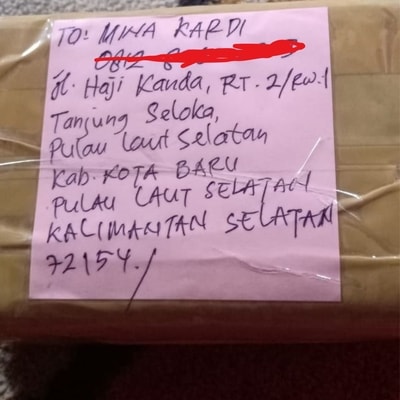 TO: MINA KARDI
0812 8
Jl. Haji Kanda, RT. 2/RW.1
Tanjung Seloka,
Pulau Laut Selatan
Kab. KOTA BARU
PULAU LAUT SELATAN
KALIMANTAN SELATAN
72154./